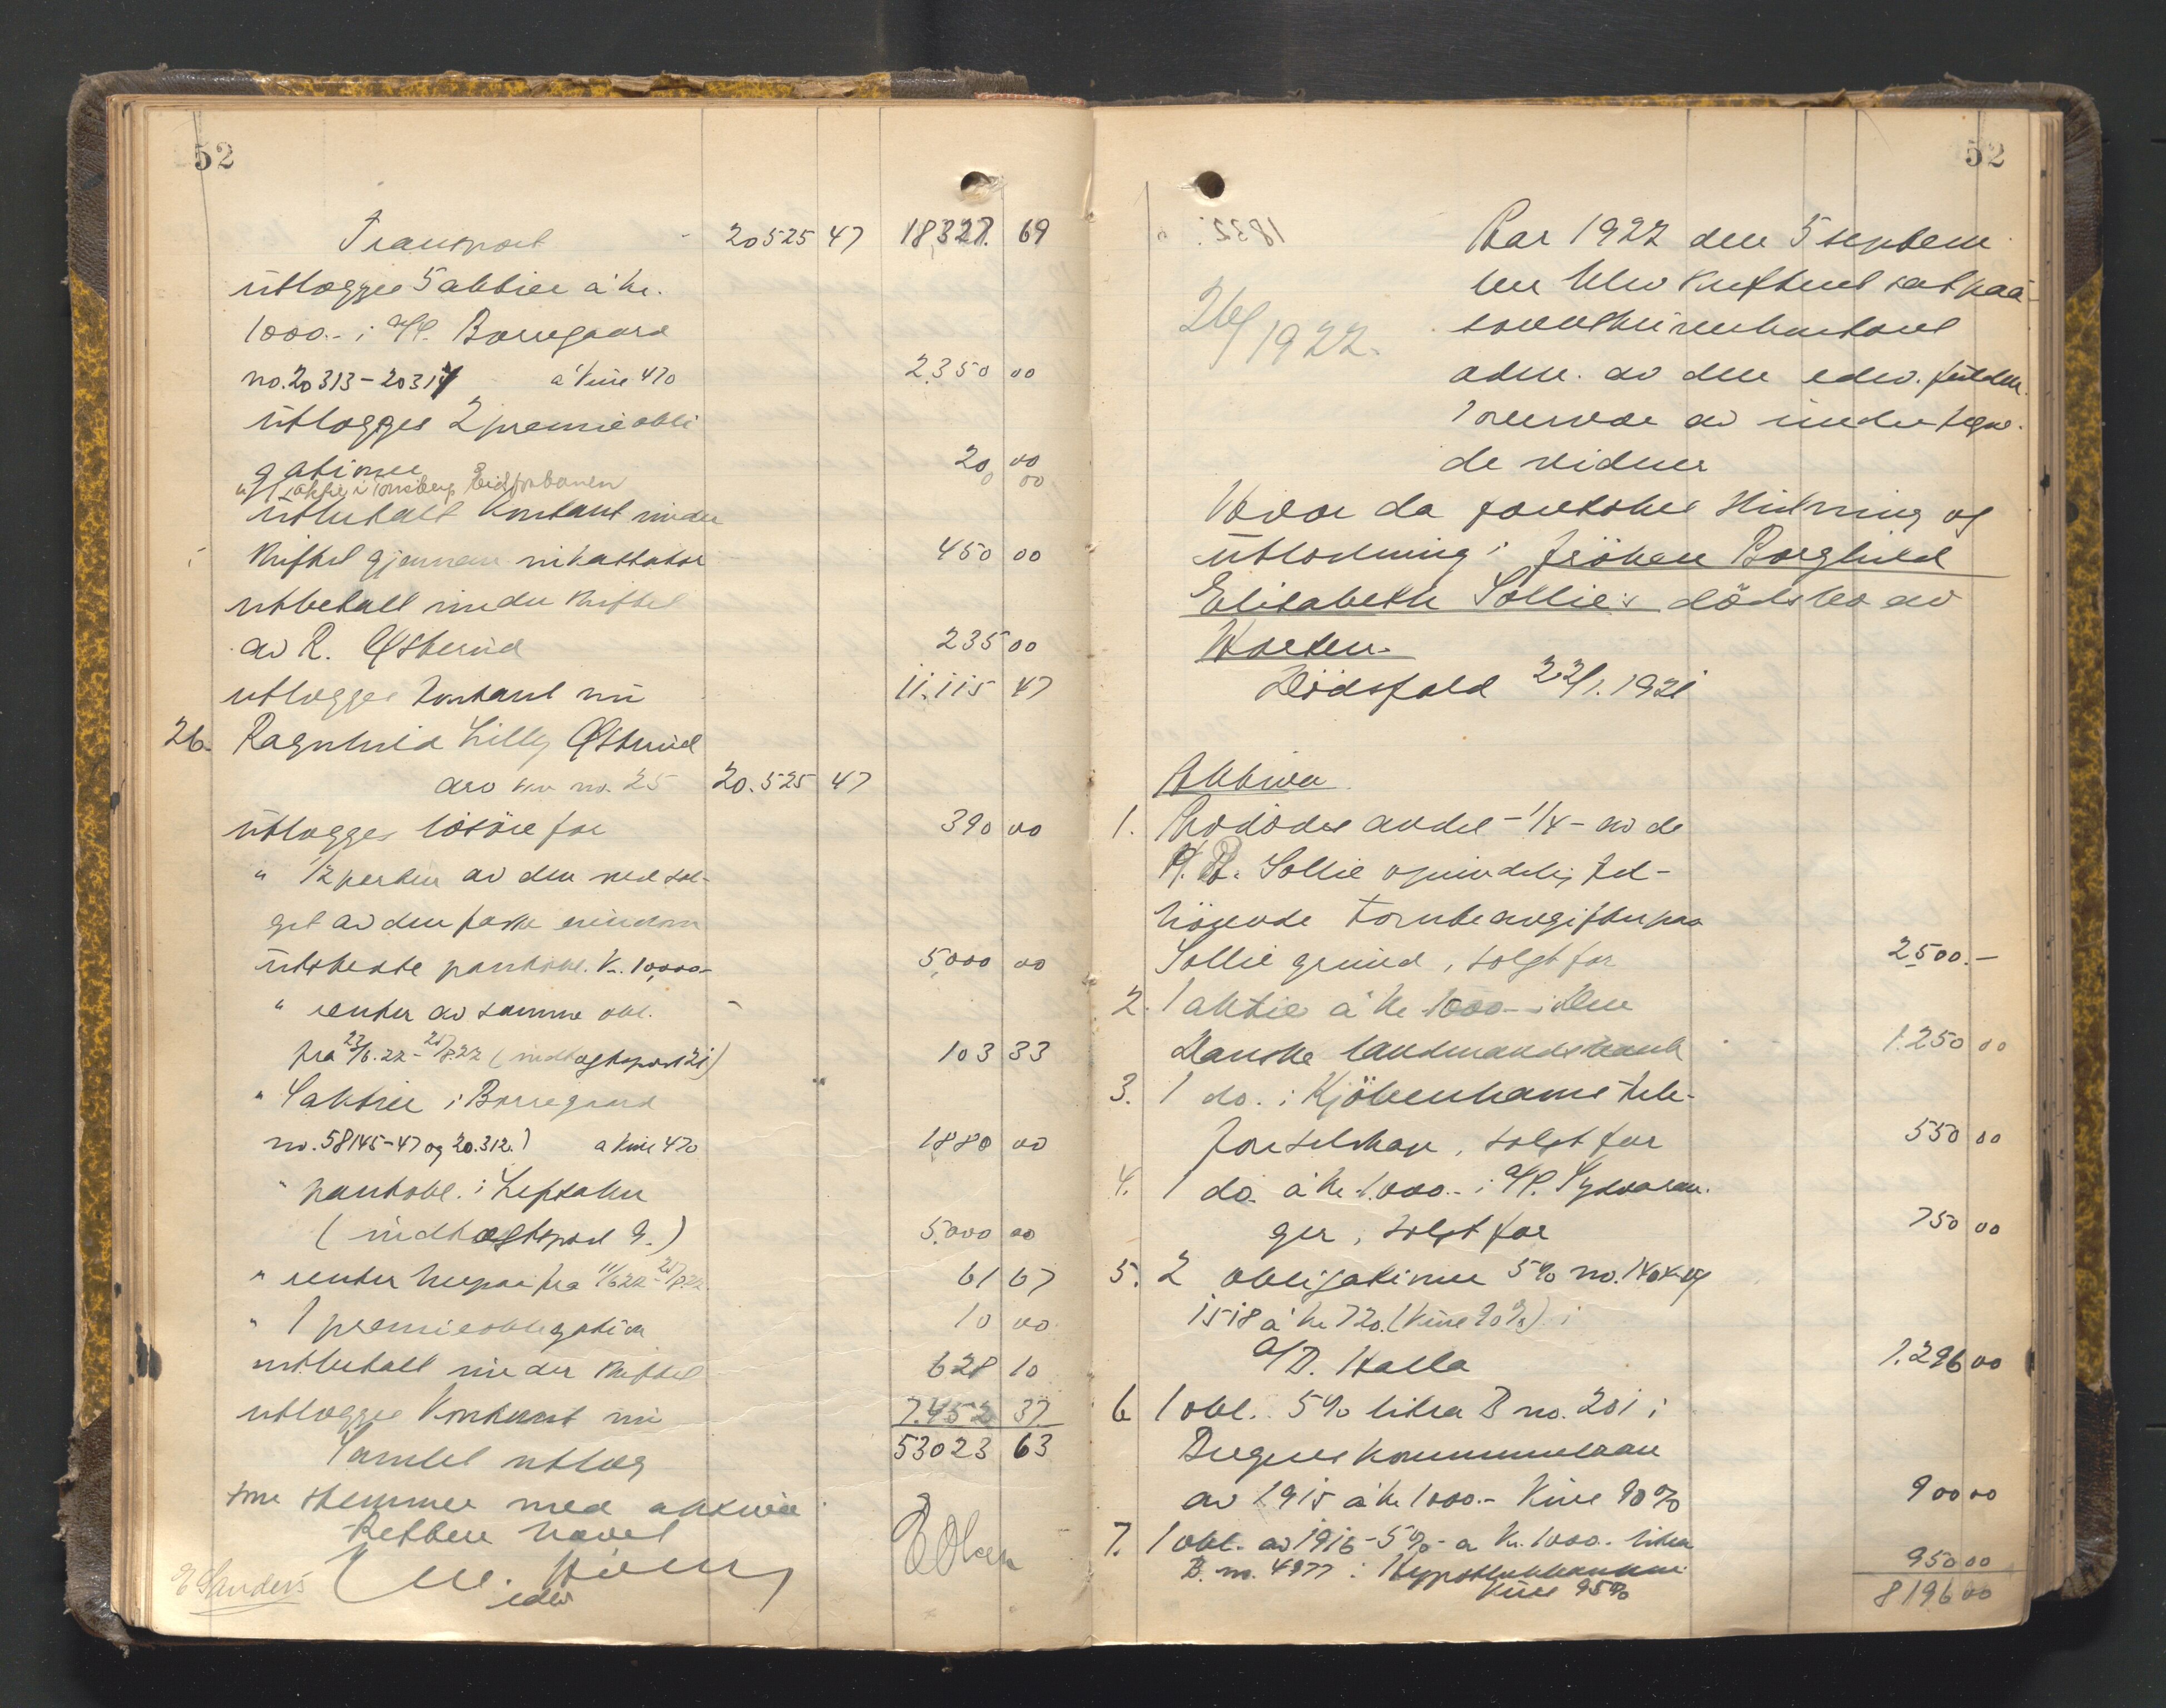 52
Transport 20525 47 18327. 69
utlægges 5 aktier à kr.
1000.- i A/S. Borregaard
no. 20313-20317 à kurs 470 2350 00
utlægges 2 premieobli
gationer 20 00
" 1 aktie i Tønsberg Eidsfosbanen 0 00
utbetalt kontant under
skiftet gjennem inkassator 450 00
utbetalt under skiftet
av R. Østerud 235 00
utlægges kontant nu 11.115 47
26. Ragnhild Lilly Østerud
arv som no. 25 20.525 47
utlægges løsøre for 390 00
" 1/2 parten av den ved sal-
get av den faste eiendom
utstedte pantobl. kr. 10,000- 5,000 00
" renter av samme obl. -
fra 23/6.22 - 25/8.22 (indtægtspost 21) 103 33
" 4 aktier i Borregaard
no. 58145-47 og 20.312.) à kurs 470 1880 00
" pantobl. i Lefsaker
(indtægtspost 9.) 5.000 00
" renter herpaa fra 11/6 22 - 25/8.22. 61 67
" 1 premieobligation 10 00
utbetalt under skiftet 628 10
utlægges kontant nu 7.452 37
Samlet utlæg 53023 63
som stemmer med aktiva.
Retten hævet
E Sanders
edsv
E Olsen
52
Aar 1922 den 5 septem
ber blev skifteret sat paa
sorenskriverkontoret
adm. av den edsv. fuldm.
i overvær av undertegne-
de vidner
26/1922.
Hvor da foretokes slutning og
utlodning i frøken Borghild
Elisabeth Sollie's dødsbo av
Horten.
Dødsfald 22/1. 1921
Aktiva
1. Avdødes andel - 1/4 - av de
H. A. Sollie oprindelig til-
hørende tomteavgifter paa
Sollie grund, solgt for 2500.-
2. 1 aktie à kr 1000- i Den
Danske landmandsbank 1.250 00
3. 1 do. i Kjøbenhavns tele-
fonselskap, solgt for 550 00
4. 1 do. à kr 1.000.- i A/S. Sydvaran-
ger, solgt for 750 00
5. 2 obligationer 5% no. 1404 og
1518 à kr 720. (kurs 90%) i
A/D. Halla 1.296 00
6 1 obl. 5% litra B no. 201 i
Bergens kommunelaan
av 1915 à kr 1000.- Kurs 90% 900 00
7. 1 obl. av 1916 - 5% - a kr. 1000. litra
B. no. 4977 i Hypotekbanken.
Kurs 95% 950 00
8196 00